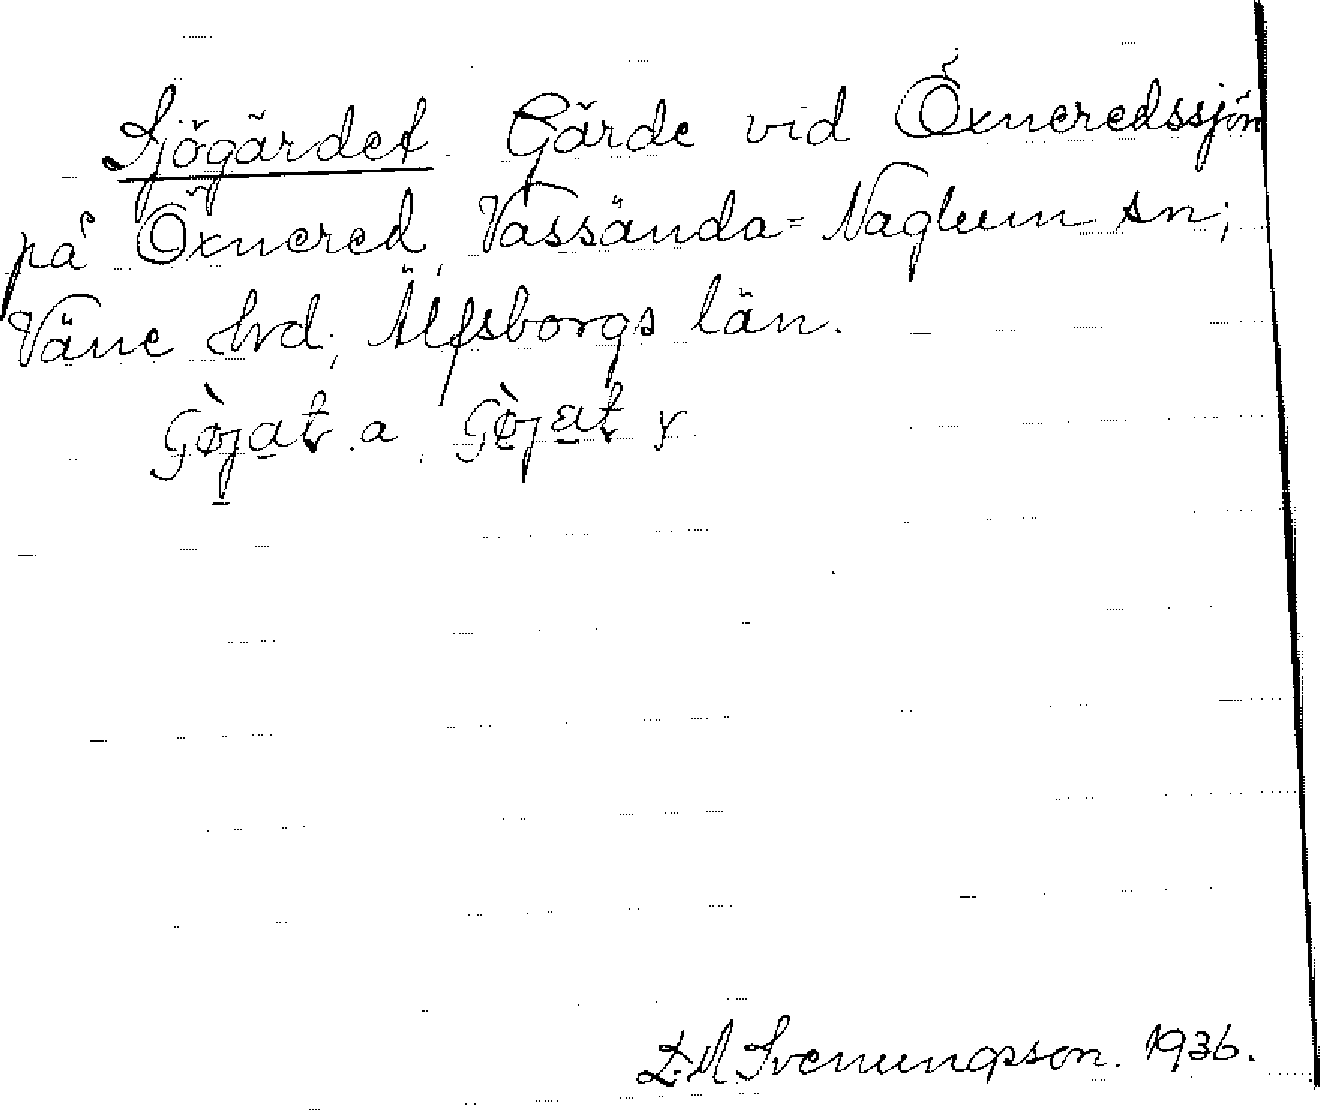 Sjögärdet. Gärde vid Öxneredssjön
på Öxnered, Vassända-Naglum sn;
Väne hrd; Älfsborgs län.
a. y
D. M Svenungsson. 1936.